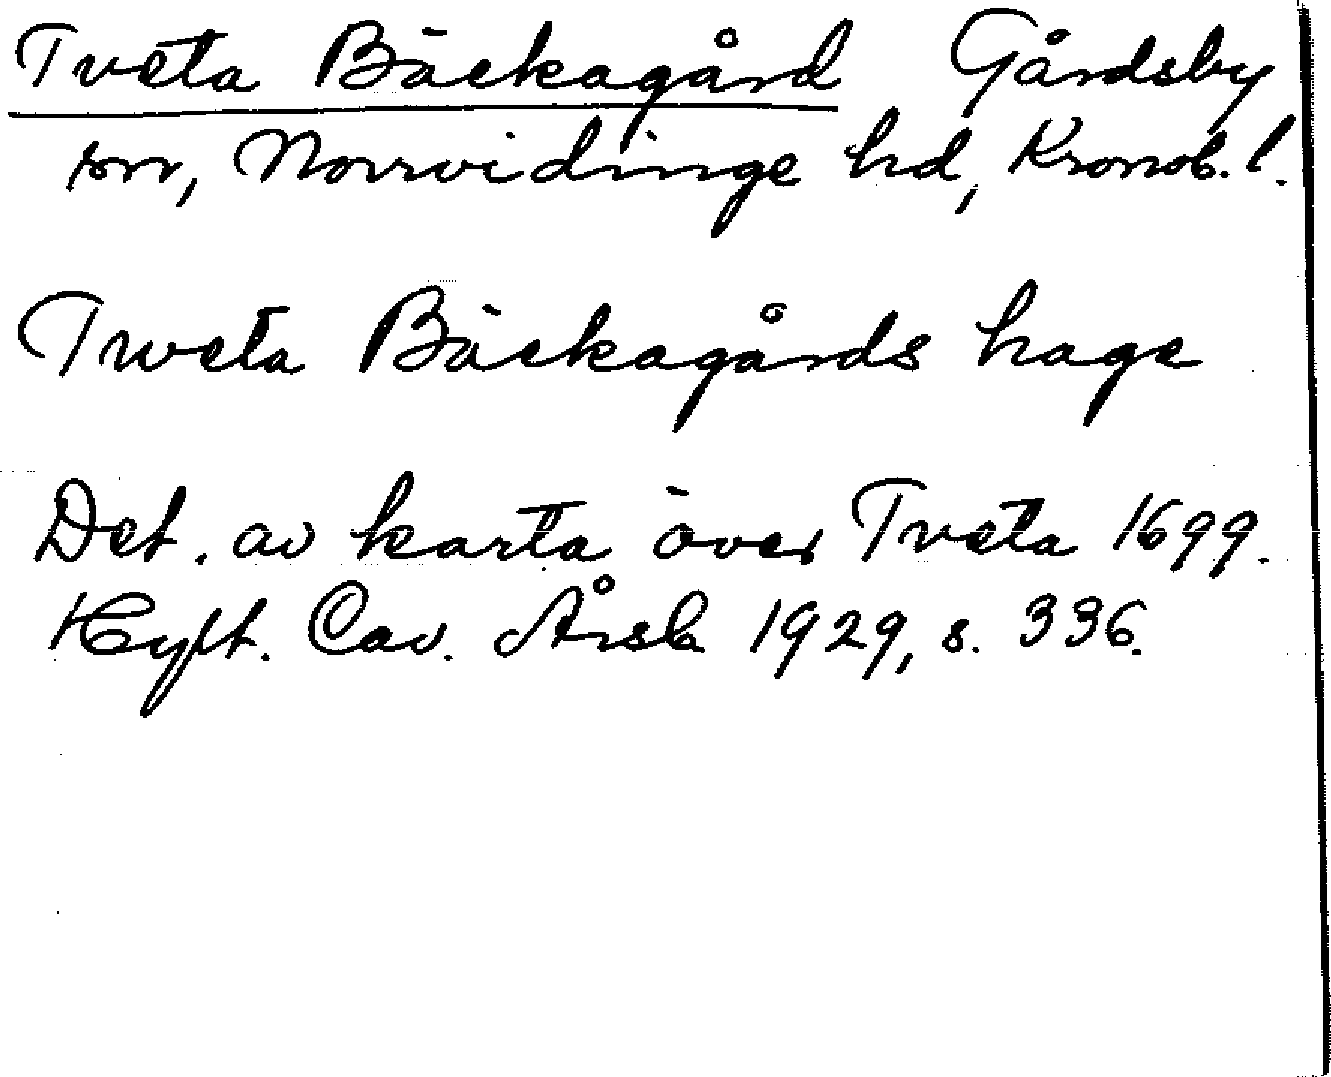 Tveta Bäckagård Gårdsby
sn, Norrvidinge hd, Kronob. l.
Tweta Bäckagårds hage
Det. av karta över Tveta 1699.
Hylt. Cav. Årsb 1929, s. 336.